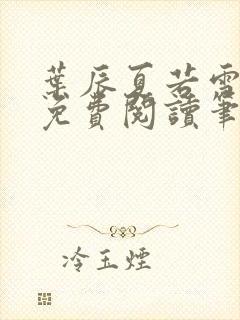 葉辰夏若雪
免費閱讀筆
冷玉煙